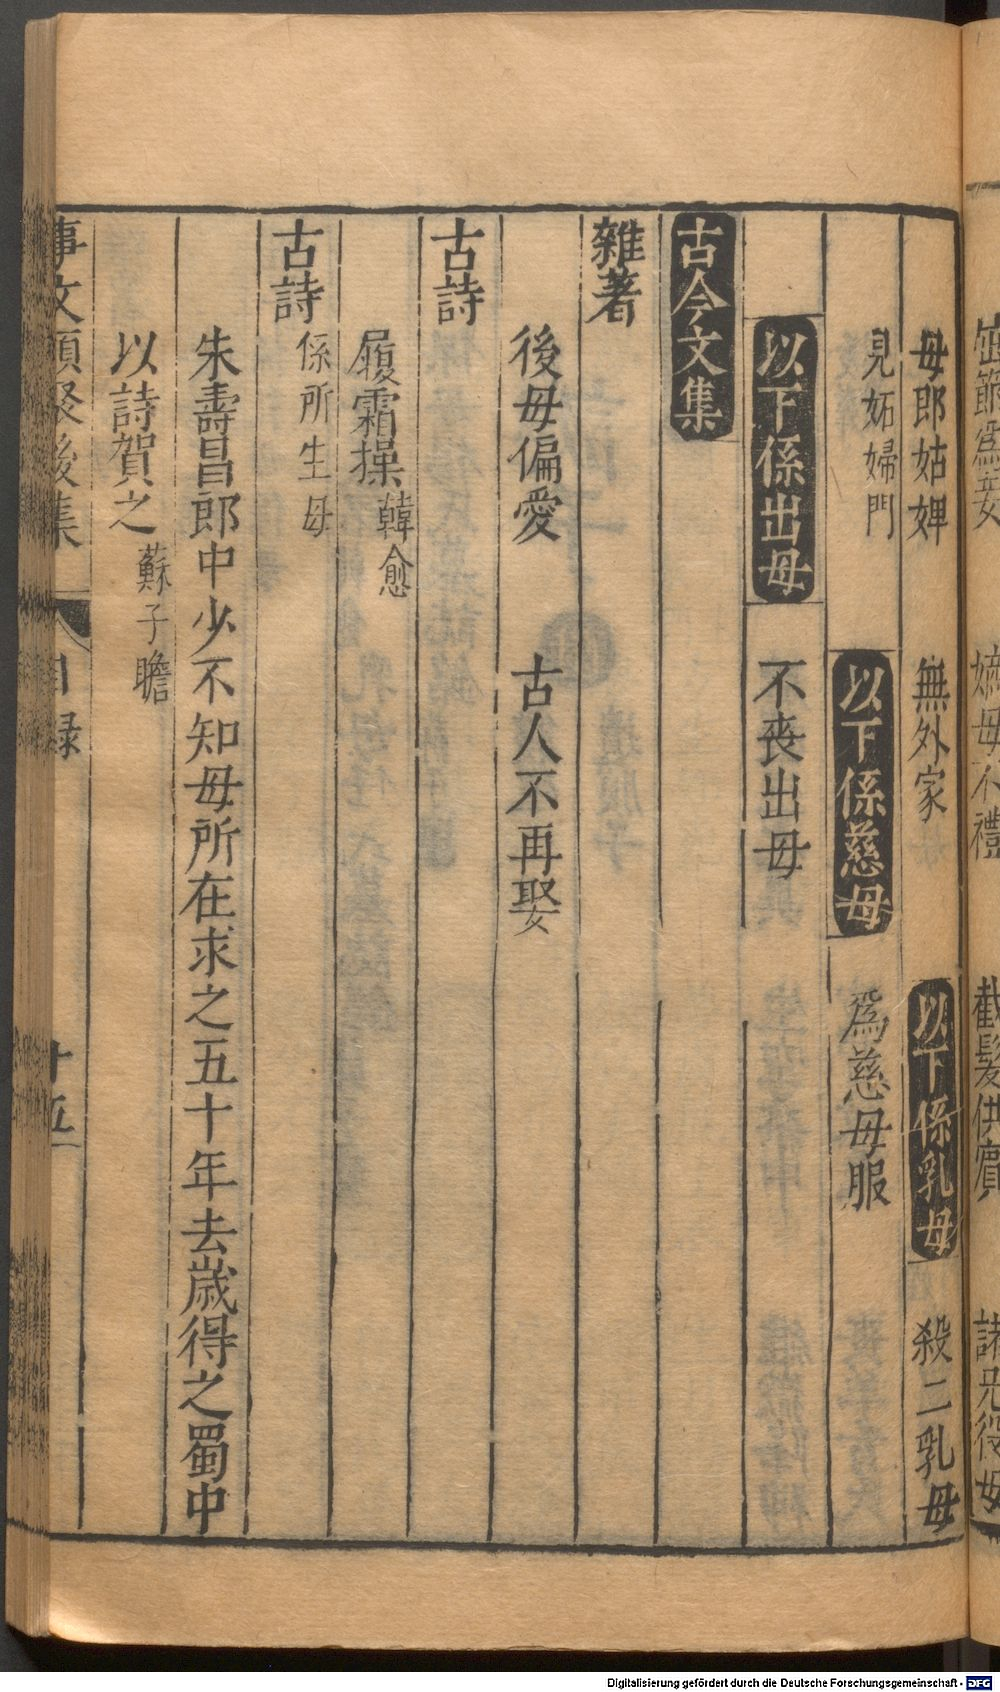 嫡母不禮
截髮供賓
諸兄役母
母郎姑婢　無外家　以下係乳母　殺二乳母
見妬婦門　以下係慈母　爲慈母服
以下係出母　不喪出母
古今文集
雜著
後母偏愛　古人不再娶
古詩
履霜操 韓愈
古詩 係所生母
朱壽昌郎中少不知母所在求之五十年去歲得之蜀中
以詩賀之 蘇子瞻
事文類聚後集　目録　十五
Digitalisierung gefördert durch die Deutsche Forschungsgemeinschaft - DFG